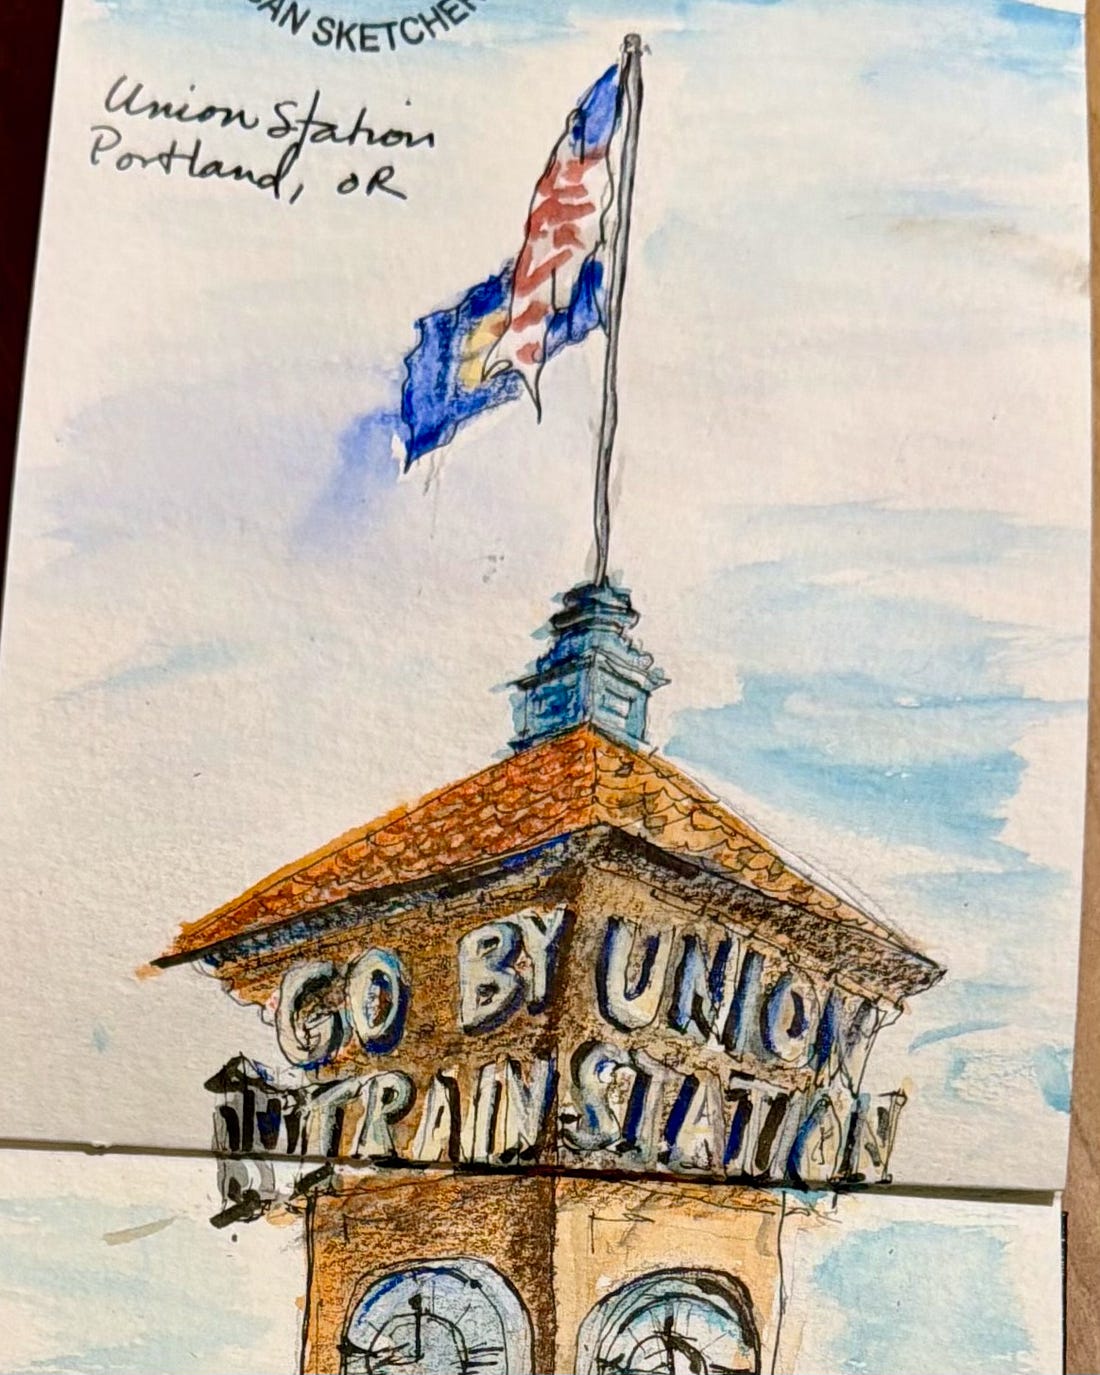 SKETCHER
Union Station
Portland, OR
GO BY UNION
TRAIN STATION